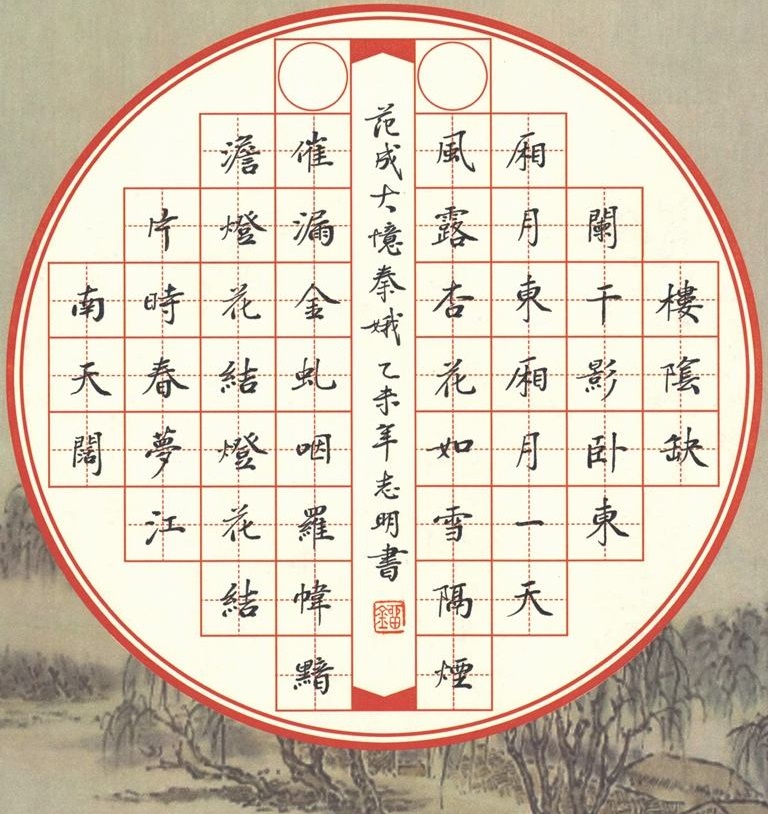 樓陰缺
闌干影卧東
厢月東厢月一天
風露杏花如雪隔煙
范成大憶秦娥 乙未年志明書
催漏金虬咽羅幃黯
澹燈花結燈花結
片時春夢江
南天闊